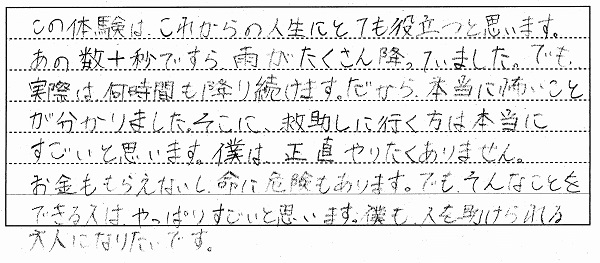 この体験は、これからの人生にとても役立つと思います。
あの数十秒ですら、雨がたくさん降っていました。でも、
実際は、何時間も降り続けます。だから、本当に怖いこと
が分かりました。そこに、救助しに行く方は本当に
すごいと思います。僕は、正直やりたくありません。
お金ももらえないし、命に危険もあります。でも、そんなことを
できる人は、やっぱりすごいと思います。僕も、人を助けられる
大人になりたいです。